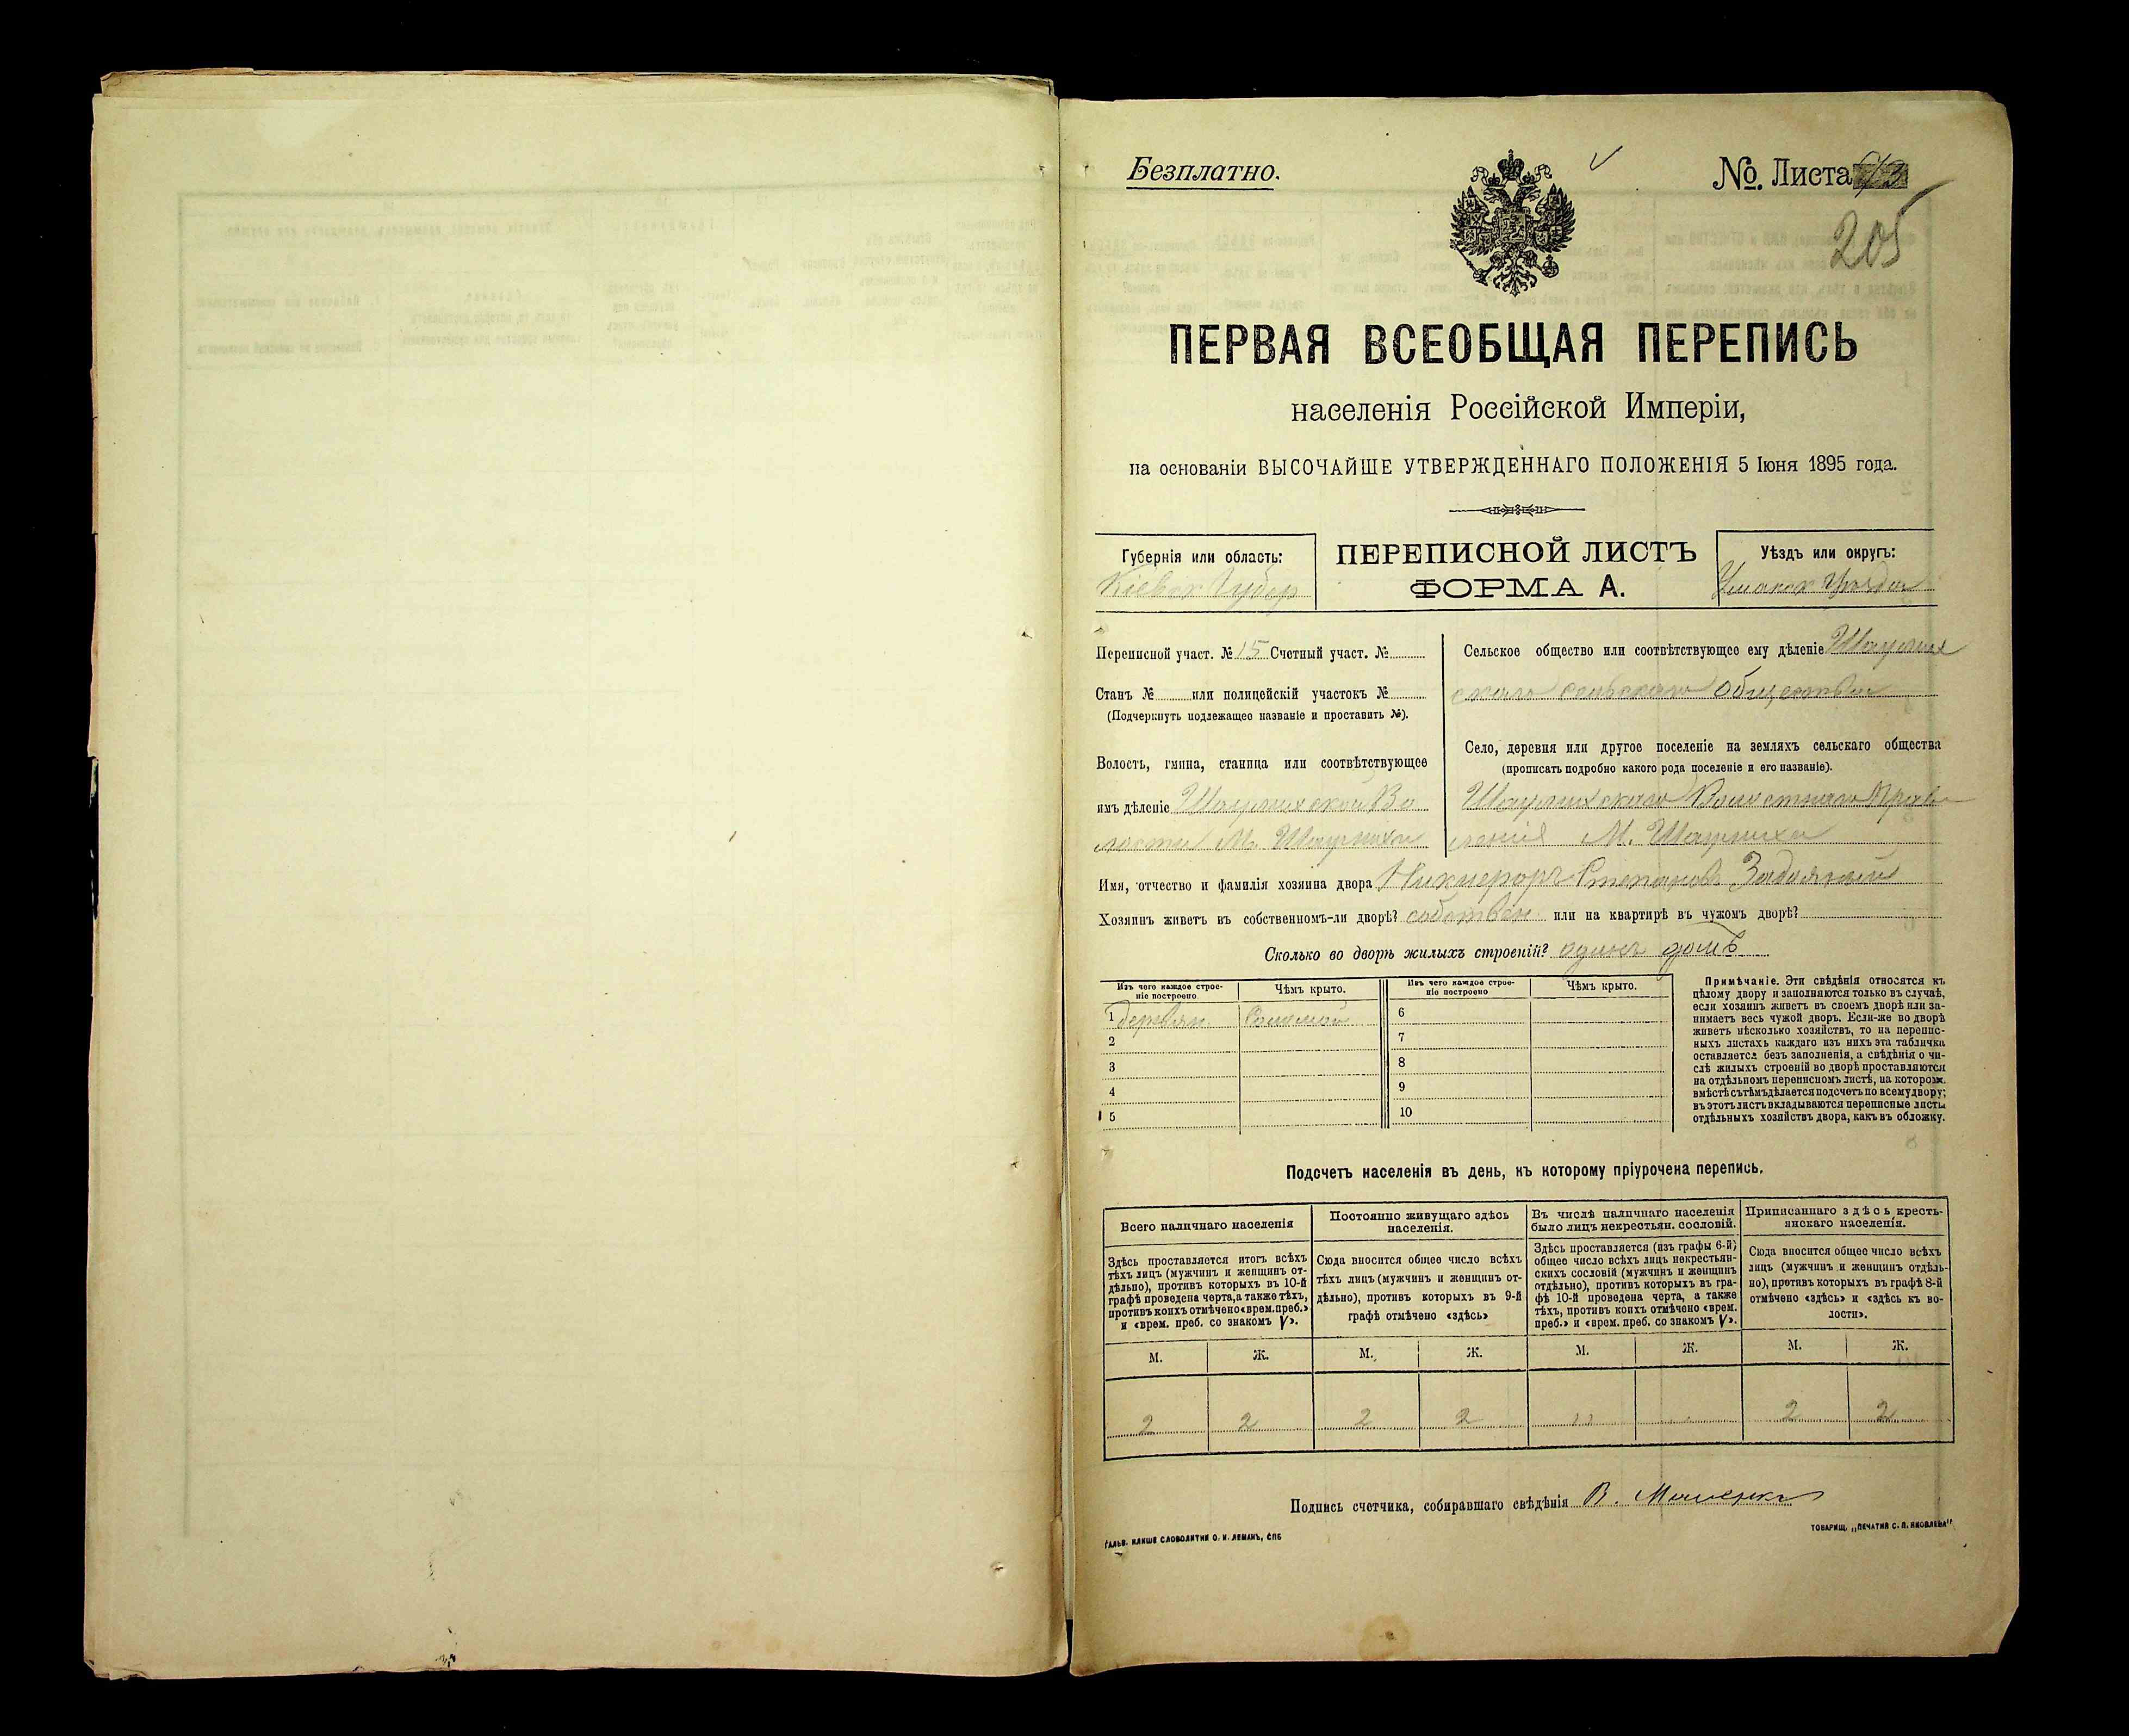 Безплатно.
№. Листа
205
ПЕРВАЯ ВСЕОБЩАЯ ПЕРЕПИСЬ
населенія Россійской Имперіи,
на основаніи ВЫСОЧАЙШЕ УТВЕРЖДЕННАГО ПОЛОЖЕНІЯ 5 Іюня 1895 года.
Губернія или область:
Кіевск Губер
ПЕРЕПИСНОЙ ЛИСТЪ
ФОРМА А.
Уѣздъ или округъ:
Уманск Уѣзда
Переписной участ. № 15 Счетный участ. №
Станъ № или полицейскій участокъ №
(Подчеркнуть подлежащее названіе и проставить №).
Волость, гмина, станица или соотвѣтствующее
имъ дѣленіе
лости М.
Сельское общество или соотвѣтствующее ему дѣленіе
скаго сельскаго общества
Село, деревня или другое поселеніе на земляхъ сельскаго общества
(прописать подробно какого рода поселеніе и его названіе).
Волостнаго Прав
ленія М.
Имя, отчество и фамилія хозяина двора Никифоръ Степановъ
Хозяинъ живетъ въ собственномъ-ли дворѣ? собствен или на квартирѣ въ чужомъ дворѣ?
Сколько во дворѣ жилыхъ строеній? одинъ домъ
Изъ чего каждое строе-
ніе построено
Чѣмъ крыто.
Изъ чего каждое строе-
ніе построено
Чѣмъ крыто.
1 деревян. Соломой
2
3
4
5
6
7
8
9
10
Примѣчаніе. Эти свѣдѣнія относятся къ
цѣлому двору и заполняются только въ случаѣ,
если хозяинъ живетъ въ своемъ дворѣ или за-
нимаетъ весь чужой дворъ. Если-же во дворѣ
живетъ нѣсколько хозяйствъ, то на перепис-
ныхъ листахъ каждаго изъ нихъ эта табличка
оставляется безъ заполненія, а свѣдѣнія о чи-
слѣ жилыхъ строеній во дворѣ проставляются
на отдѣльномъ переписномъ листѣ, на которомъ
вмѣстѣ съ тѣмъ дѣлается подсчетъ по всему двору;
въ этотъ листъ вкладываются переписные листы
отдѣльныхъ хозяйствъ двора, какъ въ обложку.
Подсчетъ населенія въ день, къ которому пріурочена перепись.
Всего наличнаго населенія
Здѣсь проставляется итогъ всѣхъ
тѣхъ лицъ (мужчинъ и женщинъ от-
дѣльно), противъ которыхъ въ 10-й
графѣ проведена черта, а также тѣхъ,
противъ коихъ отмѣчено «врем. преб.»
и «врем. преб. со знакомъ V».
Постоянно живущаго здѣсь
населенія.
Сюда вносится общее число всѣхъ
тѣхъ лицъ (мужчинъ и женщинъ от-
дѣльно), противъ которыхъ въ 9-й
графѣ отмѣчено «здѣсь»
Въ числѣ наличнаго населенія
было лицъ некрестьян. сословій.
Здѣсь проставляется (изъ графы 6-й)
общее число всѣхъ лицъ некрестьян-
скихъ сословій (мужчинъ и женщинъ
отдѣльно), противъ которыхъ въ гра-
фѣ 10-й проведена черта, а также
тѣхъ, противъ коихъ отмѣчено «врем.
преб.» и «врем. преб. со знакомъ V».
Приписаннаго здѣсь кресть-
янскаго населенія.
Сюда вносится общее число всѣхъ
лицъ (мужчинъ и женщинъ отдѣль-
но), противъ которыхъ въ графѣ 8-й
отмѣчено «здѣсь» и «здѣсь къ во-
лости».
М. Ж. М. Ж. М. Ж. М. Ж.
2 2 2 2 " " 2 2
Подпись счетчика, собиравшаго свѣдѣнія В.
ГАЛЬВ. КЛИШЕ СЛОВОЛИТНИ О. И. ЛЕМАНЪ, СПБ
ТОВАРИЩ. „ПЕЧАТНЯ С. П. ЯКОВЛЕВА"